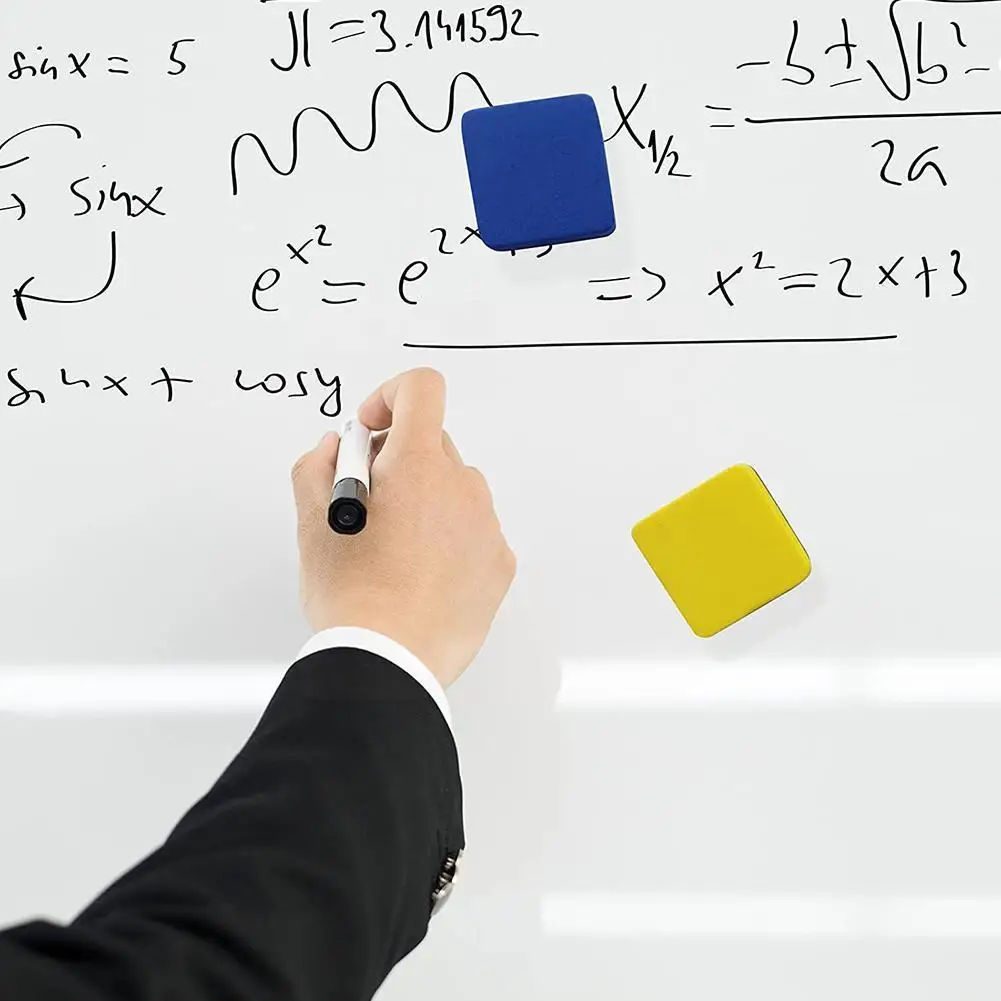 sin x = 5
π = 3.141592
x₁/₂ = -b ± √b² - / 2a
→ sinx
e^x² = e^2x+3 => x² = 2x+3
sin x + cosy